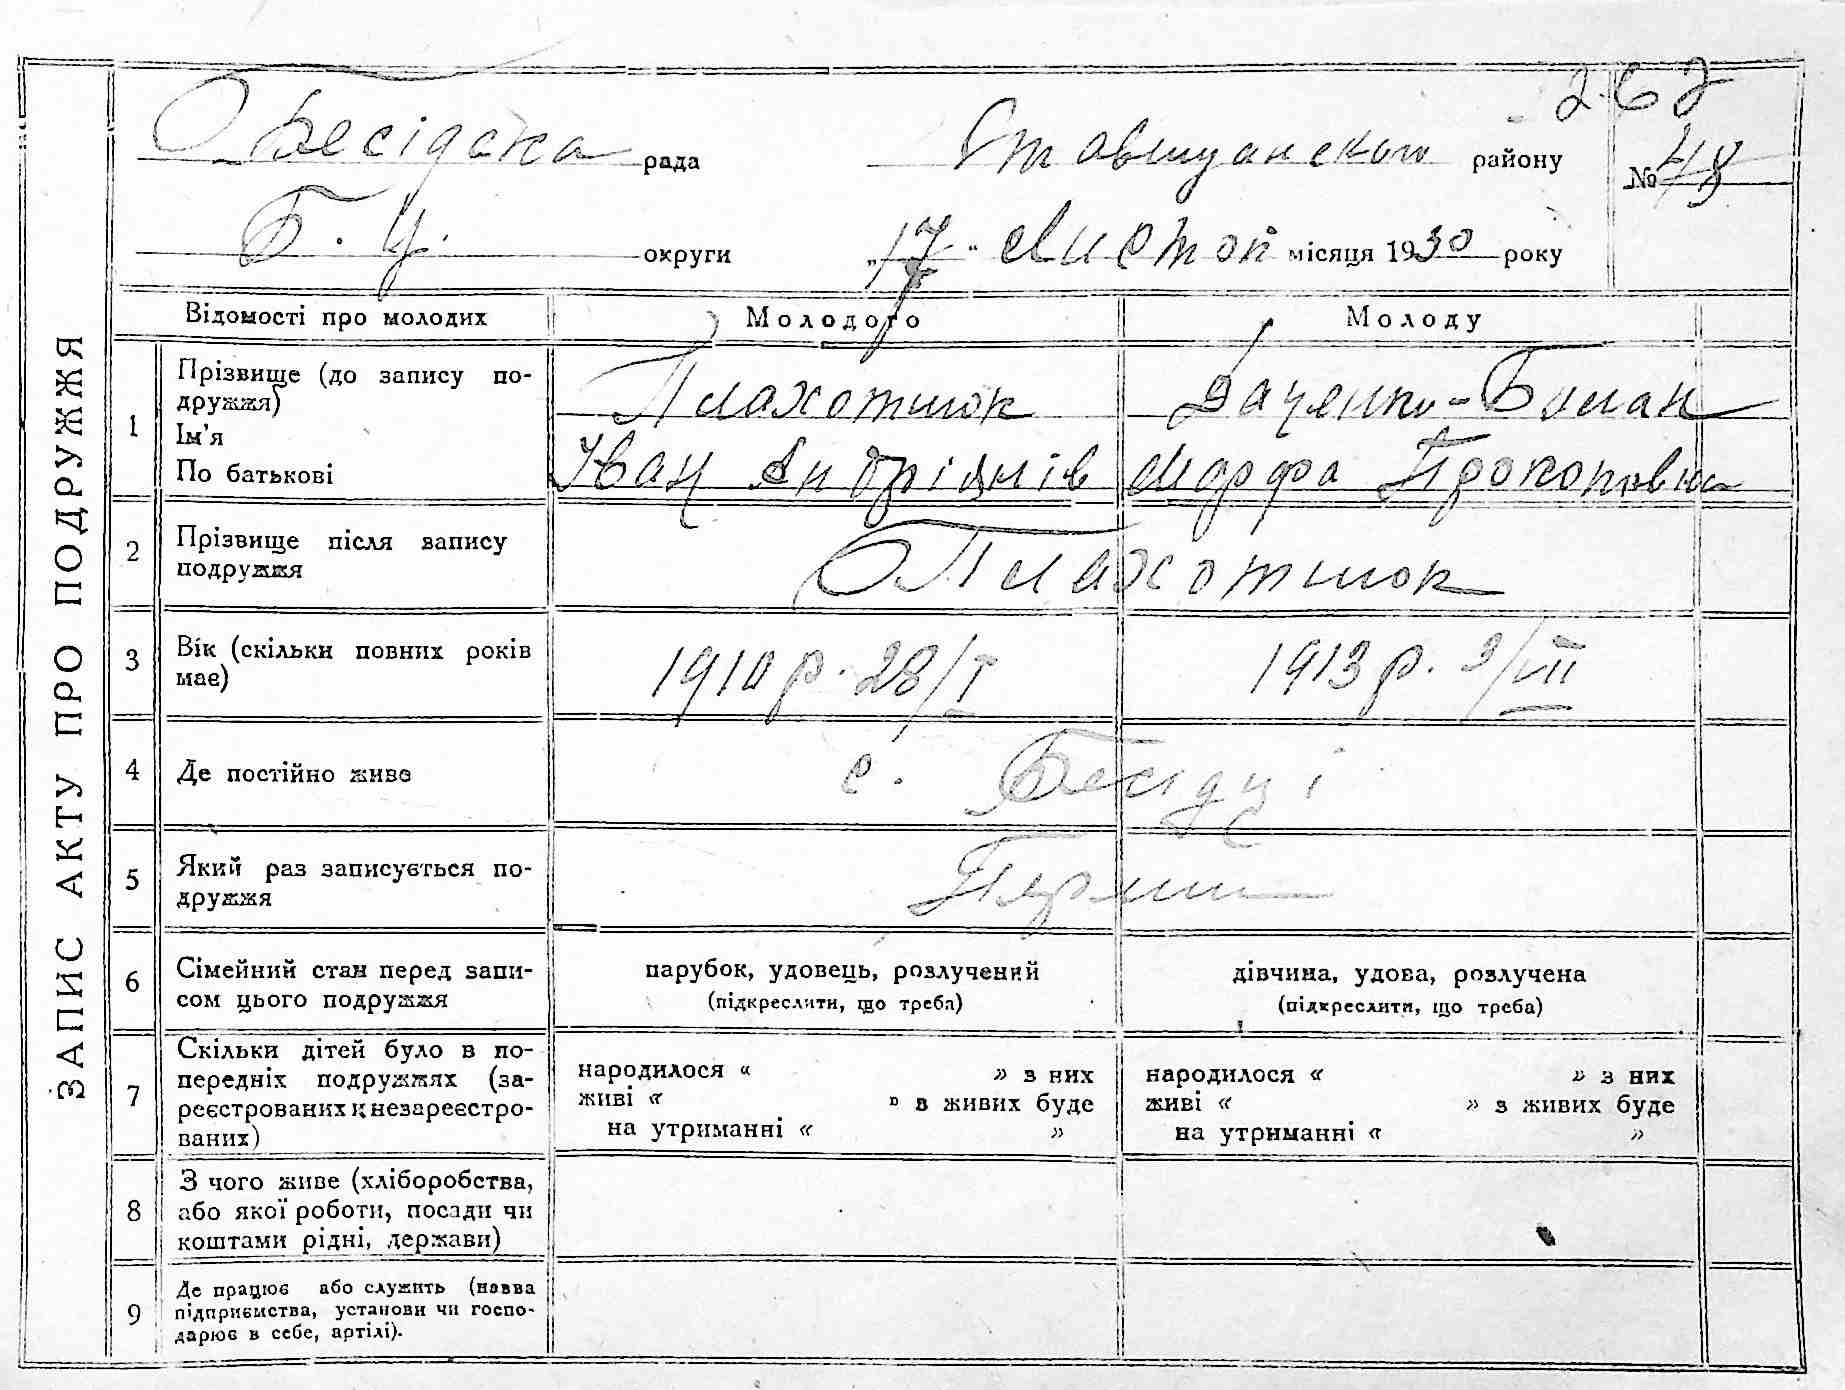 267
Бесідська рада Ставищанського району № 48
Б. Ц. округи „17" Листоп місяця 1930 року
ЗАПИС АКТУ ПРО ПОДРУЖЖЯ
Відомості про молодих Молодого Молоду
1 Прізвище (до запису по-
дружжя) Плахотнюк Даценко-Биман
Ім'я
По батькові Іван Андріянів Марфа Прокоповна
2 Прізвище після запису
подружжя Плахотнюк
3 Вік (скільки повних років
має) 1910 р. 28/I 1913 р. 3/VII
4 Де постійно живе с. Бесідці
5 Який раз записується по-
дружжя Перши
6 Сімейний стан перед запи-
сом цього подружжя
парубок, удовець, розлучений
(підкреслити, що треба)
дівчина, удова, розлучена
(підкреслити, що треба)
7 Скільки дітей було в по-
передніх подружжях (за-
реєстрованих і незареєстро-
ваних)
народилося « » з них
живі « » з живих буде
на утриманні « »
народилося « » з них
живі « » з живих буде
на утриманні « »
8 З чого живе (хліборобства,
або якої роботи, посади чи
коштами рідні, держави)
9 Де працює або служить (назва
підприємства, установи чи госпо-
дарює в себе, артілі).